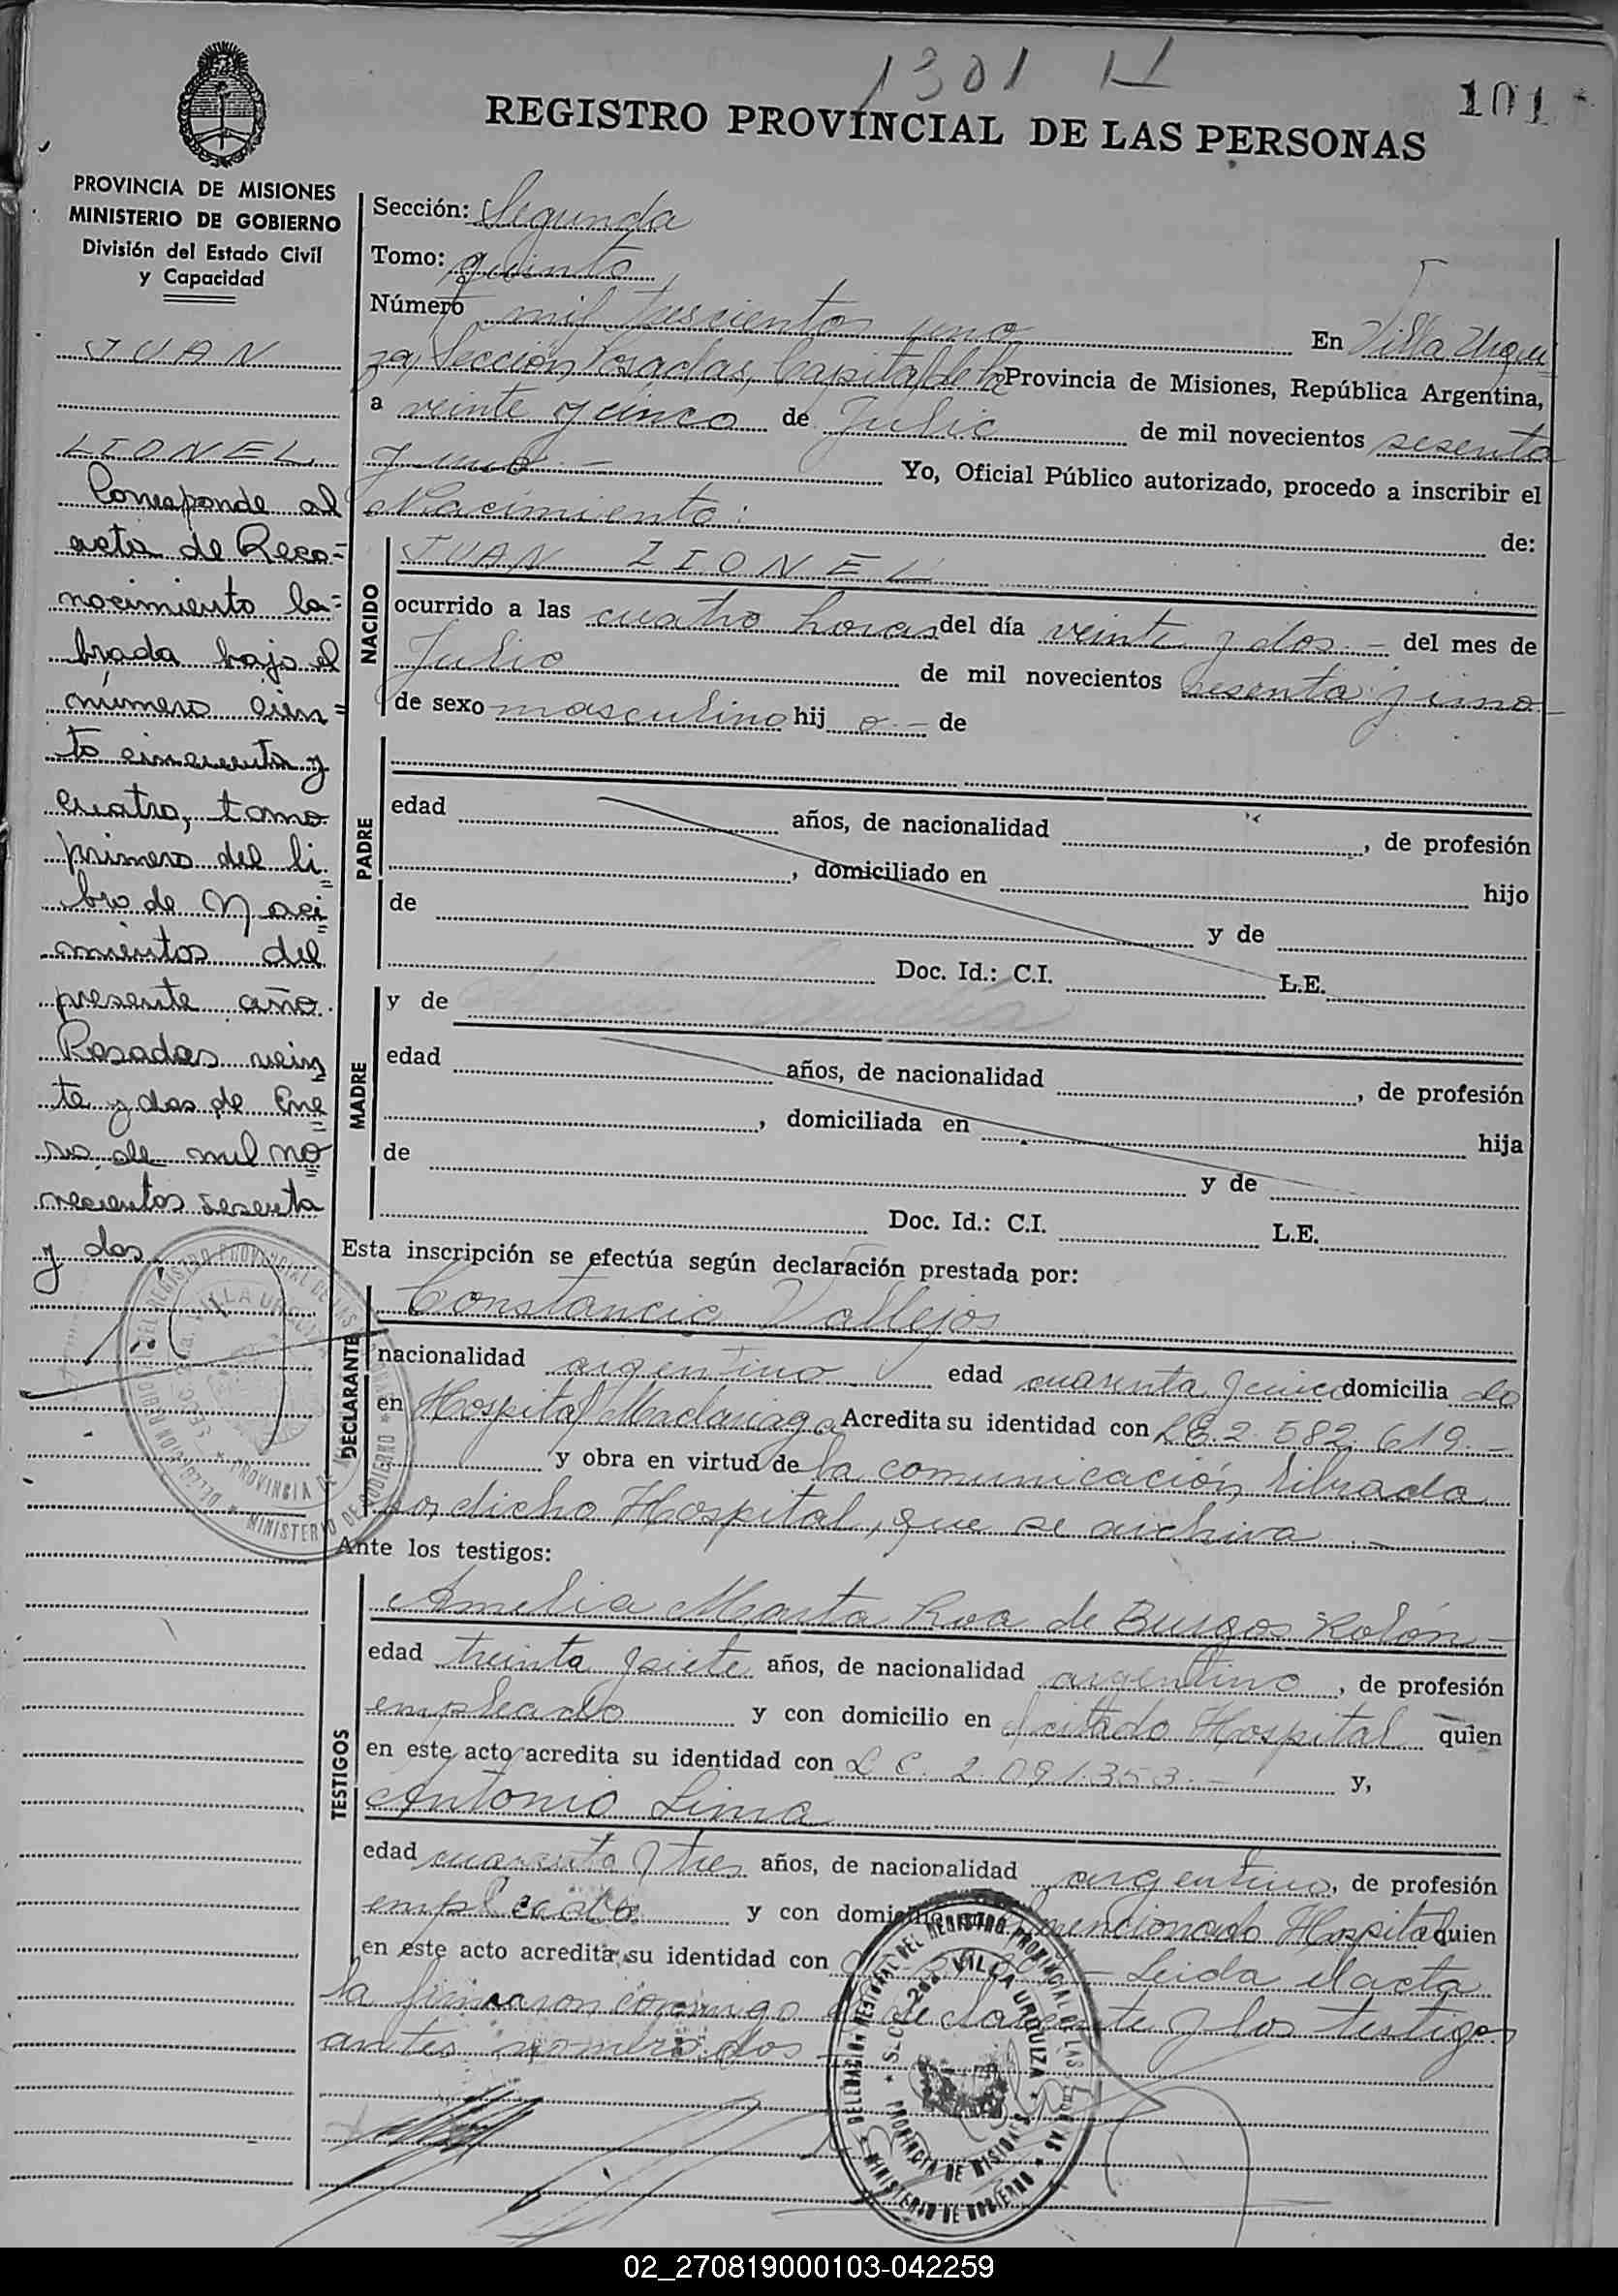 1301 H
101
REGISTRO PROVINCIAL DE LAS PERSONAS
PROVINCIA DE MISIONES
MINISTERIO DE GOBIERNO
División del Estado Civil
y Capacidad
JUAN
LIONEL
Corresponde al
acta de Reco=
nocimiento la=
brada bajo el
número cien=
to cincuenta y
cuatro, tomo
primero del li=
bro de Naci=
mientos del
presente año.
Posadas vein=
te y dos de Ene=
ro de mil no=
vecientos sesenta
y dos
Sección: Segunda
Tomo: quinto
Número mil trescientos uno En Villa Urqui
za, Sección Posadas, Capital de la Provincia de Misiones, República Argentina,
a veinte y cinco de Julio de mil novecientos sesenta
y uno.- Yo, Oficial Público autorizado, procedo a inscribir el
Nacimiento: de:
NACIDO
JUAN LIONEL
ocurrido a las cuatro horas del día veinte y dos.- del mes de
Julio de mil novecientos sesenta y uno
de sexo masculino hij o.- de
PADRE
edad años, de nacionalidad , de profesión
, domiciliado en hijo
de y de
Doc. Id.: C.I. L.E.
MADRE
y de
edad años, de nacionalidad , de profesión
, domiciliada en hija
de y de
Doc. Id.: C.I. L.E.
Esta inscripción se efectúa según declaración prestada por:
DECLARANTE
Constancio Vallejos
nacionalidad argentino edad cuarenta y cinco domicilia do
en Hospital Madariaga Acredita su identidad con L.E. 2.582.619.-
y obra en virtud de la comunicación librada
por dicho Hospital, que se archiva.-
Ante los testigos:
TESTIGOS
Amelia Marta Roa de Burgos Rolón-
edad treinta y siete años, de nacionalidad argentino, de profesión
empleado y con domicilio en el citado Hospital quien
en este acto acredita su identidad con L C. 2.091.353.- y,
Antonio Lima
edad cuarenta y tres años, de nacionalidad argentino, de profesión
empleado y con domicilio mencionado Hospital quien
en este acto acredita su identidad con - Leida el acta
la firmaron conmigo el declarante y los testigos
antes nombrados-
DELEGACION REGIONAL DEL REGISTRO PROVINCIAL DE LAS PERSONAS
SECC. 2da. VILLA URQUIZA
PROVINCIA DE MISIONES
MINISTERIO DE GOBIERNO
02_270819000103-042259